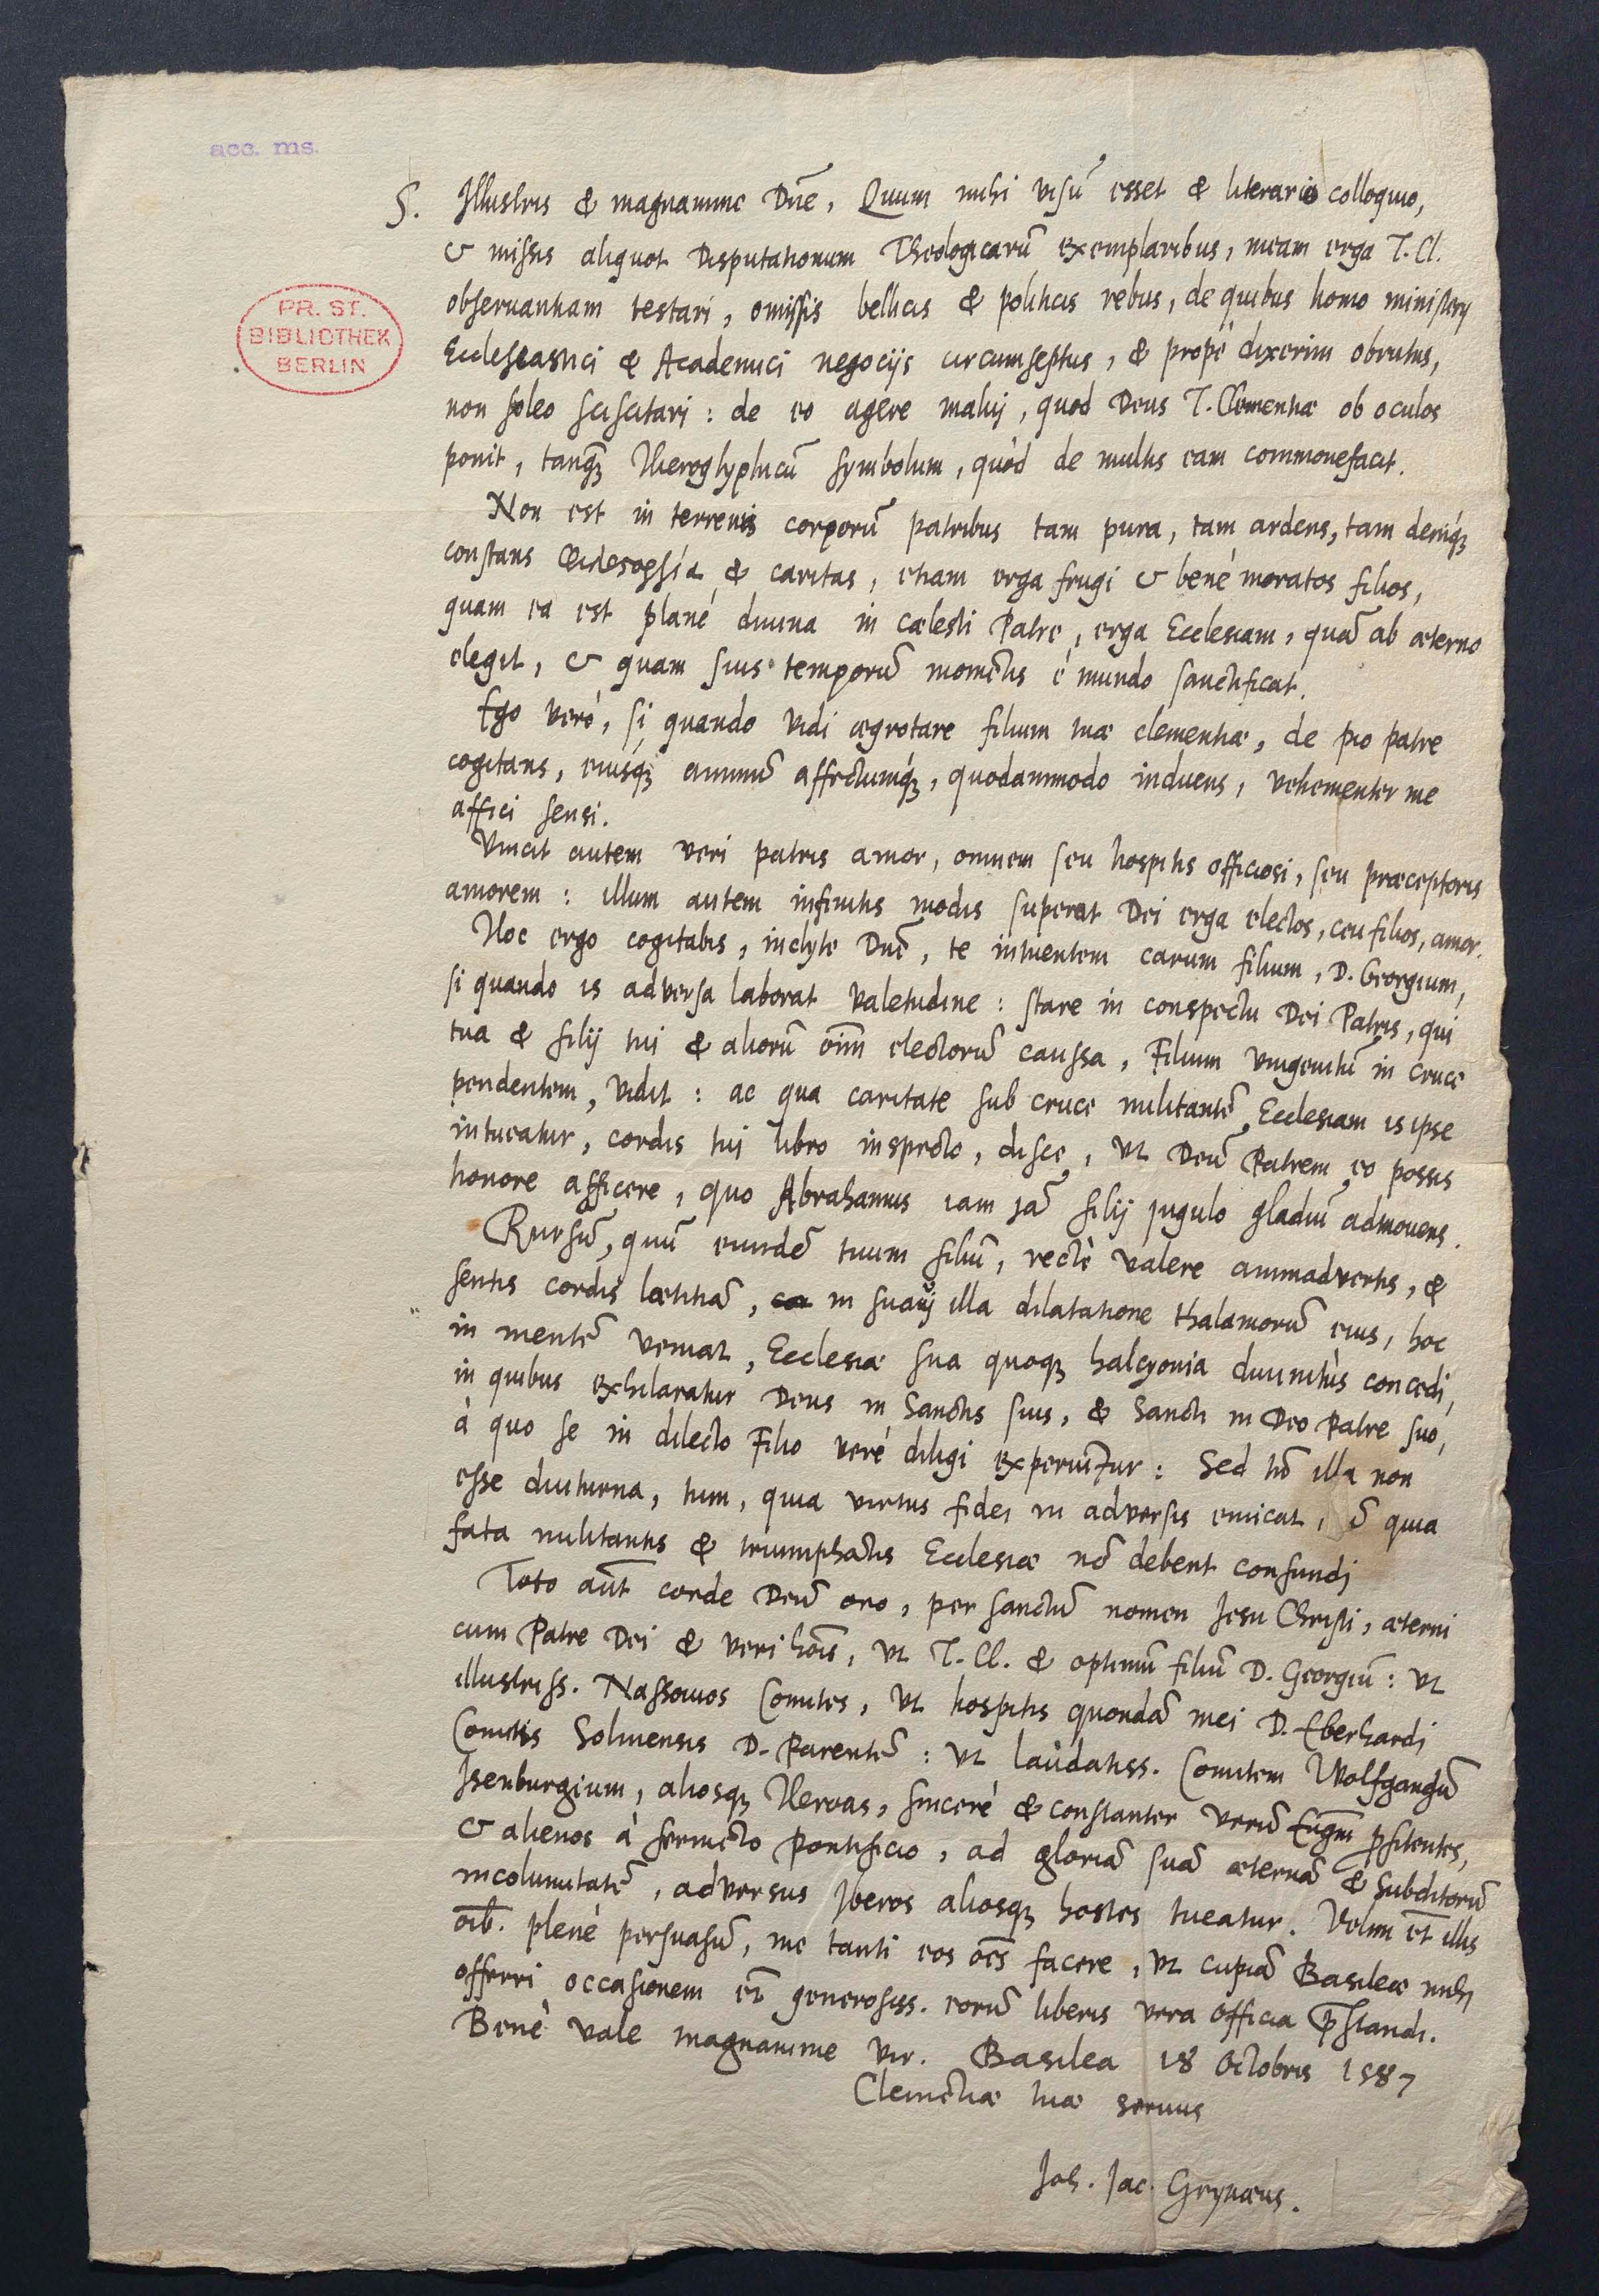 acc. ms.
PR. ST.
BIBLIOTHEK
BERLIN
S. Illustris & magnanime Dñe, Quum mihi visū esset & literario colloquio,
& missis aliquot Disputationum Theologicarū exemplaribus, meam erga T. Cl.
obseruantiam testari, omissis bellicis & politicis rebus, de quibus homo ministerij
Ecclesiastici & Academici negocijs circumseptus, & propè dixerim obrutus,
non soleo sciscitari: de eo agere malui, quod Deus T. Clementiæ ob oculos
ponit, tanq̃ Hieroglyphicū symbolum, quòd de multis eam commonefacit.
Non est in terrenis corporū patribus tam pura, tam ardens, tam deniq́ꝫ
constans & caritas, etiam erga frugi & benè moratos filios,
quam ea est planè diuina in cælesti Patre, erga Ecclesiam, quā ab æterno
elegit, & quam suis temporū momētis è mundo sanctificat.
Ego verò, si quando vidi ægrotare filium tuæ clementiæ, de pio patre
cogitans, eiusq́ꝫ animū affectumq́ꝫ, quodammodo induens, vehementer me
affici sensi.
Vincit autem veri patris amor, omnem seu hospitis officiosi, seu præceptoris
amorem: illum autem infinitis modis superat Dei erga electos, ceu filios, amor.
Hoc ergo cogitabis, inclyte Dñe, te intuentem carum filium, D. Georgium,
si quando is adversa laborat valetudine: stare in conspectu Dei Patris, qui
tua & filij tui & aliorū oīm electorū caussa, Filium vnigenitū in cruce
pendentem, vidit: ac qua caritate sub cruce militantē Ecclesiam is ipse
intueatur, cordis tui libro inspecto, disce, vt Deū Patrem eo possis
honore afficere, quo Abrahamus iam jā filij jugulo gladiū admouens.
Rursū, quū eiusdē tuum filiū, rectè valere animadvertis, &
sentis cordis lætitiā, in suavi illa dilatatione thalamorū eius, hoc
in mentē veniat, Ecclesiæ sua quoqꝫ halcyonia diuinitùs concedi,
in quibus exhilaratur Deus in Sanctis suis, & Sancti in Deo Patre suo,
à quo se in dilecto Filio verè diligi experiūtur: Sed nō illa non
esse diuturna, tum, quia virtus fidei in adversis emicat, quia
fata militantis & triumphātis Ecclesiæ nō debent confundi
Toto aūt corde Deū oro, per sanctū nomen Jesu Christi, æterni
cum Patre Dei & veri hoīs, vt T. Cl. & optimū filiū D. Georgiū: vt
illustriss. Nassouios Comites, vt hospitis quondā mei D. Eberhardi
Comitis Solmensis D. Parentē: vt laudatiss. Comitem Wolfgangū
Isenburgium, aliosqꝫ Heroas, sincerè & constanter verū Eūgm̄ p̄fitentes,
& alienos à fermēto Pontificio, ad gloriā suā æternā & Subditorū
incolumitatē, adversus Iberos aliosqꝫ hostes tueatur. Velim et illis
oīb. plenè persuasū, me tanti eos oēs facere, vt cupiā Basileæ mihi
offerri occasionem et generosiss. eorū liberis vera officia p̄standi.
Benè vale magnanime vir. Basilea 18 Octobris 1587
Clemētiæ tuæ seruus
Joh. Jac. Grynæus.